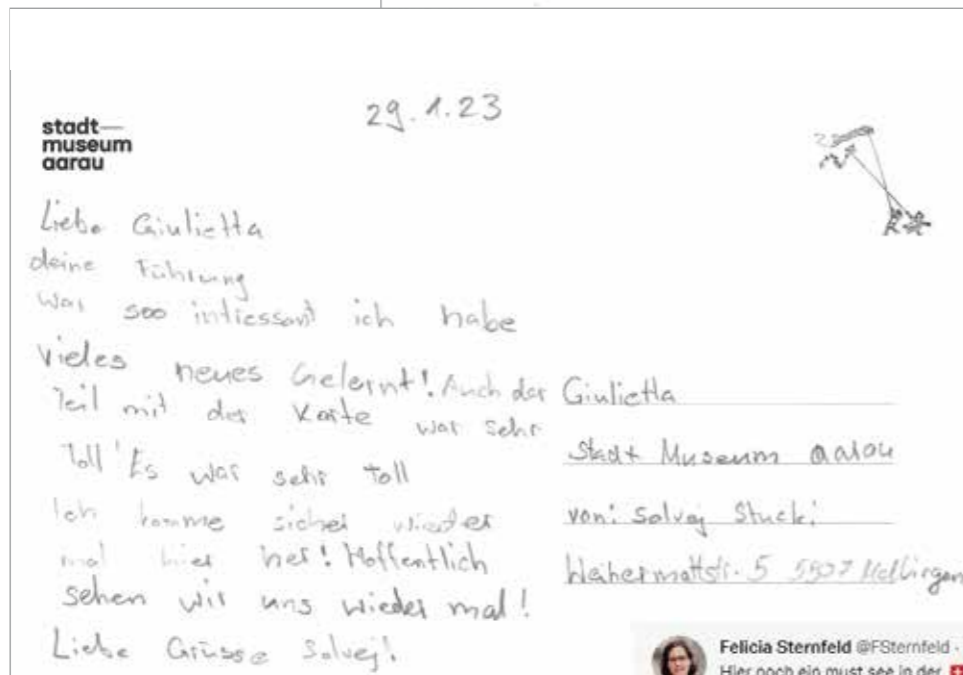 29.1.23
stadt—
museum
aarau
Liebe Giulietta
deine Führung
war soo intressant ich habe
vieles neues Gelernt! Auch der
Teil mit der Karte war sehr
Toll! Es war sehr toll
Ich komme sicher wieder
mal hier her! Hoffentlich
sehen wir uns wieder mal!
Liebe Grüsse Solvej!
Giulietta
Stadt Museum aarau
von: Solvej Stucki
5507 Mellingen
Felicia Sternfeld @FSternfeld ·
Hier noch ein must see in der